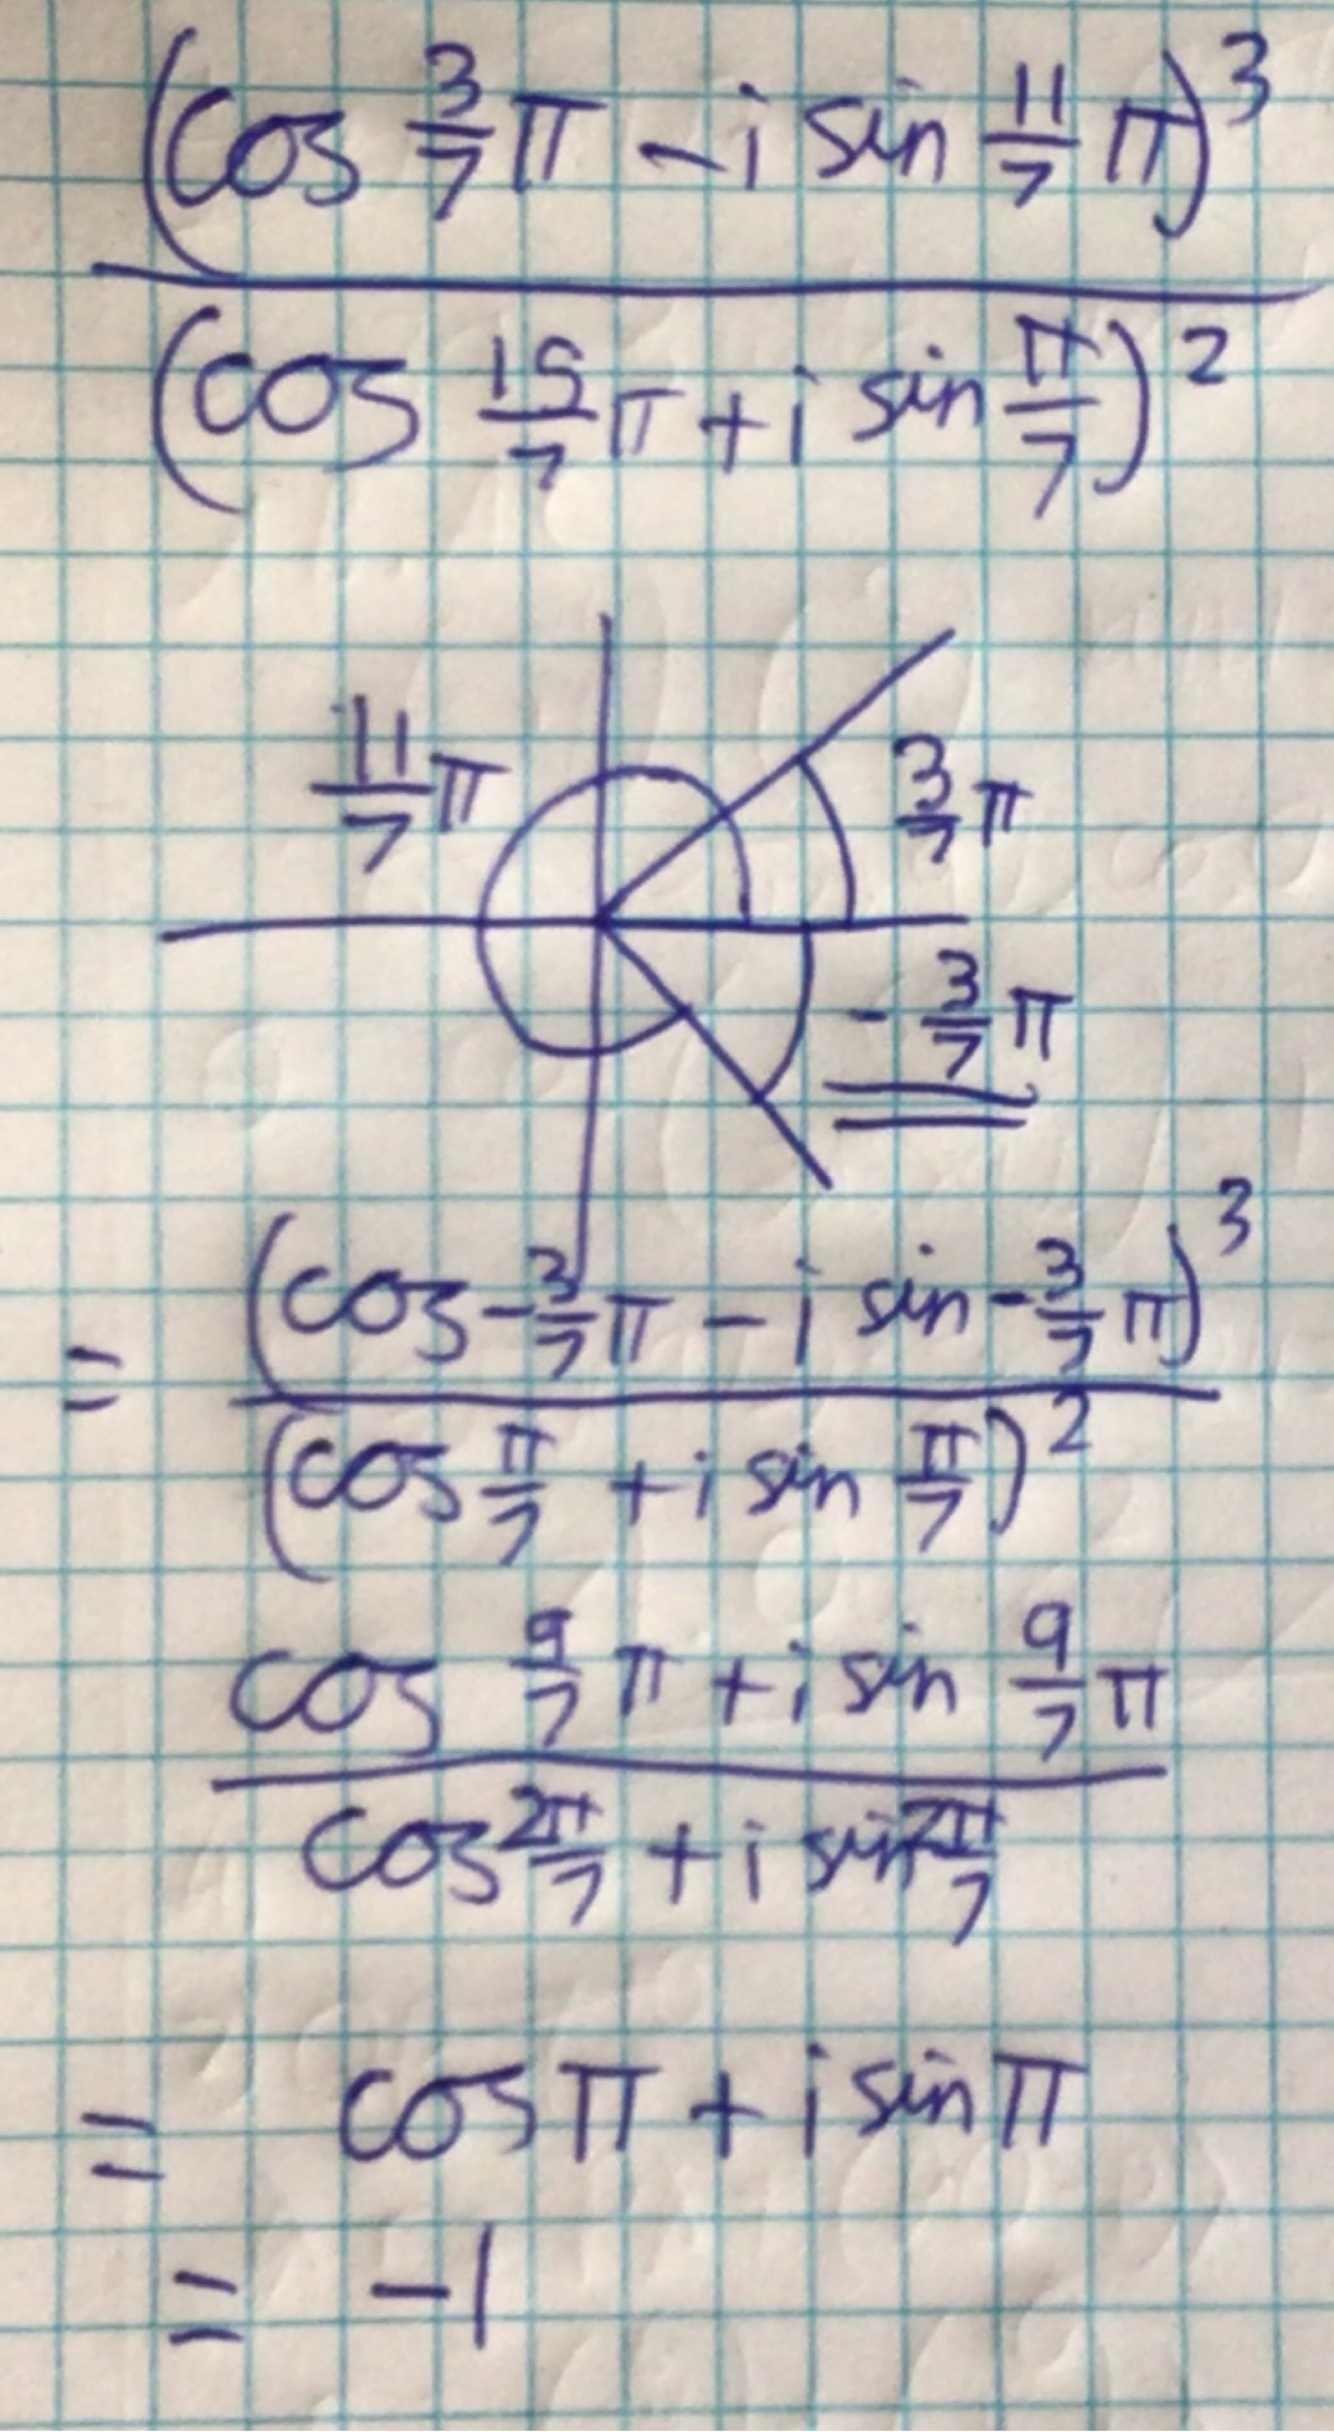 (cos 3/7 π - i sin 11/7 π)^3
(cos 15/7 π + i sin π/7)^2
11/7 π
3/7 π
- 3/7 π
= (cos - 3/7 π - i sin - 3/7 π)^3
(cos π/7 + i sin π/7)^2
cos 9/7 π + i sin 9/7 π
cos 2π/7 + i sin 2π/7
= cos π + i sin π
= -1